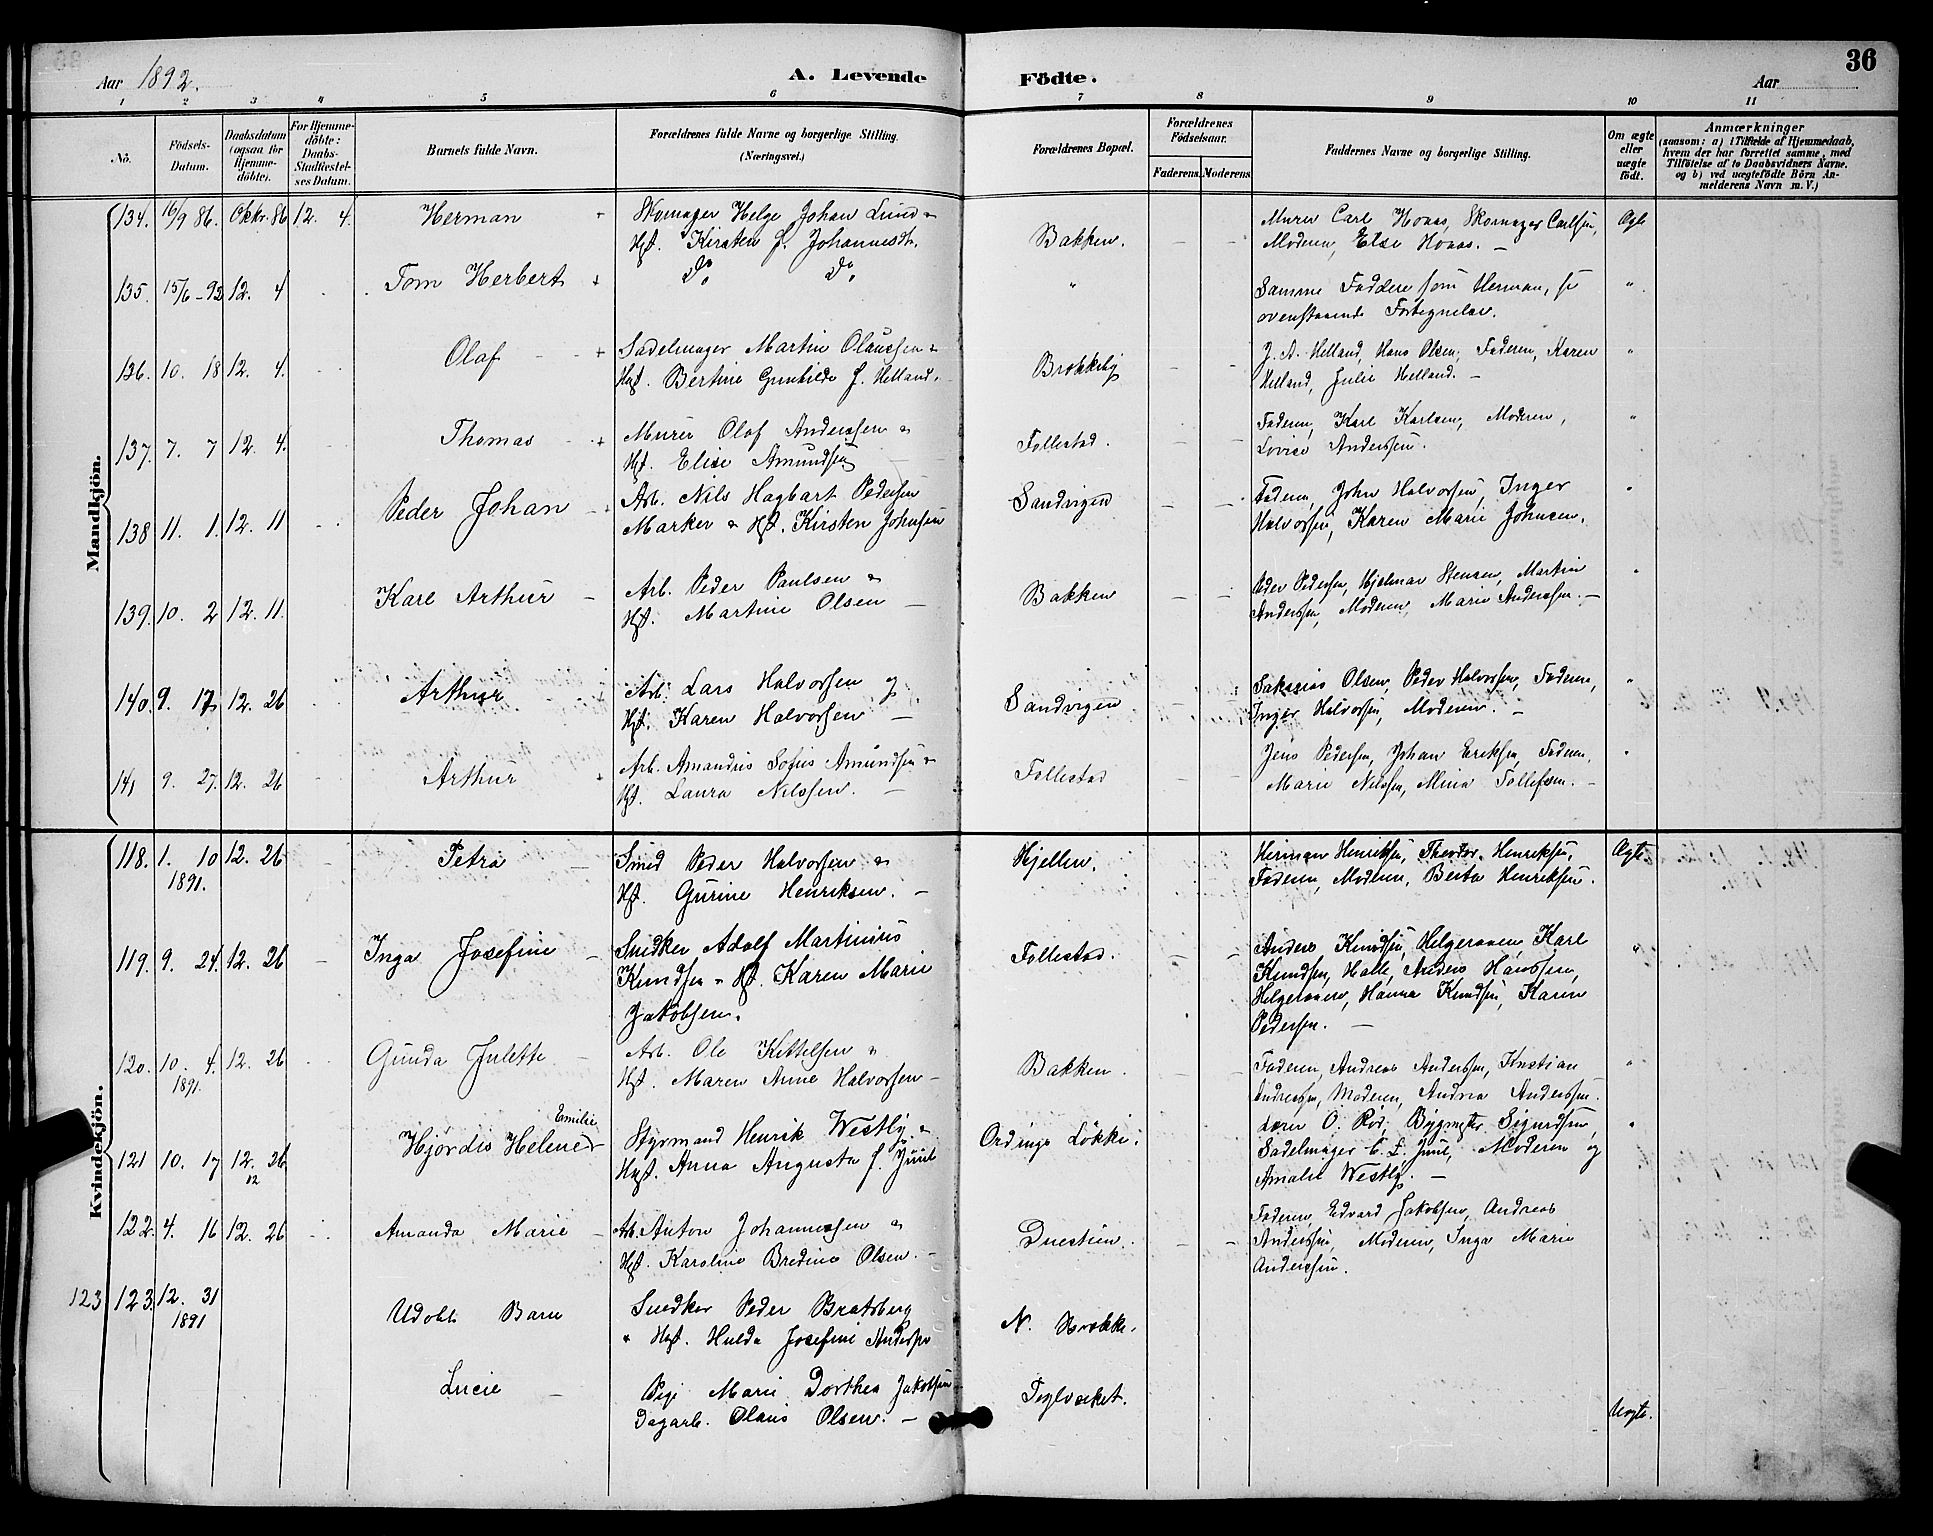 36
Aar 1892.
A. Levende Födte.
Aar
1 2 3 4 5 6 7 8 9 10 11
Nô. Födsels-Datum. Daabsdatum (ogsaa for Hjemme-döbte). For Hjemme-döbte: Daabs-Stadfæstel-ses Datum. Barnets fulde Navn. Forældrenes fulde Navne og borgerlige Stilling. (Næringsvei.) Forældrenes Bopæl. Forældrenes Födselsaar. Faderens. Moderens Faddernes Navne og borgerlige Stilling. Om ægte eller uægte födt. Anmærkninger
(saasom: a) i Tilfælde af Hjemmedaab, hvem der har forrettet samme, med Tilföielse af to Daabsvidners Navne. og b) ved uægtefödte Börn An-melderens Navn m. V.)
Mandkjön.
134. 16/9 86. Oktr. 86 12. 4. Herman Skomager Helge Johan Lund &
Hst. Kirsten f. Johannesdt. Bakken. Murer Carl Hoaas, Skomager Carlsen, Ægte
Moderen, Else Hoaas. —
135. 15/6 - 92 12. 4 Tom Herbert Do Do " Samme Faddere som Herman, se "
ovenstaaende Fortegnelse.
136. 10. 18 12. 4. Olaf Sadelmager Martin Olaussen &
Hst. Bertine Gunhilde f. Helland. Brokkeby J. A. Helland, Hans Olsen, Faderen, Karen "
Helland, Julie Helland. —
137. 7. 7 12. 4. Thomas Murer Olaf Anderssen &
Hst. Elise Amundsen Follestad. Faderen, Karl Karlsen, Moderen, "
Lovise Anderssen.
138 11. 1. 12. 11 Peder Johan Arb. Nils Hagbart Pedersen
Marker & Hst. Kirsten Johnsen Sandvigen Faderen, John Halvorsen, Inger "
Halvorsen, Karen Marie Johnsen.
139. 10. 2 12. 11. Karl Arthur Arb. Peder Paulsen &
Hst. Martine Olsen — Bakken Peder Pedersen, Hjalmar Stensen, Martin "
Anderssen, Moderen, Marie Anderssen. —
140. 9. 17 12. 26 Arthur Arb. Lars Halvorsen og
Hst. Karen Halvorsen — Sandvigen Sakarias Olsen, Peder Halvorsen, Faderen, "
Inger Halvorsen, Moderen. —
141 9. 27. 12. 26 Arthur Arb. Amandus Sofus Amundsen &
Hst. Laura Nilssen. — Follestad Jens Pedersen, Johan Eriksen, Faderen, "
Marie Nilssen, Mina Tollefsen. —
Kvindekjön.
118. 1. 10 12. 26 Petra Smed Peder Halvorsen & Hjellen. Herman Henriksen, Theodor Henriksen, Ægte
1891. Hst. Gurine Henriksen. — Faderen, Moderen, Berta Henriksen.
119. 9. 24. 12. 26 Inga Josefine Snedker Adolf Martinius
Knudsen & Hst. Karen Marie
Jakobsen. Follestad. Anders Knudsen, Helgeroaen Karl "
Knudsen, Halle, Anders Hanssen,
Helgeroaen, Hanna Knudsen, Karen
Pedersen. —
120. 10. 4. 12. 26 Gunda Julette Arb. Ole Kittelsen &
1891. Hst. Maren Anne Halvorsen — Bakken. Faderen, Andreas Anderssen, Kristian "
Anderssen, Moderen, Andrea Anderssen.
121 10. 17 12. 26 Hjördis Helene Emilie Styrmand Henrik Westby &
12 Hst. Anna Augusta f. Juul Ordings Løkke. Lærer O. Rød, Bygmester Sigurdsen, "
Sadelmager C. L. Juul, Moderen og
Amalie Westby. —
122. 4. 16 12. 26 Amanda Marie Arb. Anton Johannessen &
Hst. Karoline Bredine Olsen. — Faderen, Edvard Jakobsen, Andreas
Anderssen, Moderen, Inga Marie
Anderssen.
123 123. 12. 31 Udöbt Barn Snedker Peder Bratsberg
1891 & Hst. Hulda Josefine N. Brokke.
Lucie Pige Marie Dorthea Jakobsen
Dagarb. Olaus Olsen. — Teglværket. Uægte.